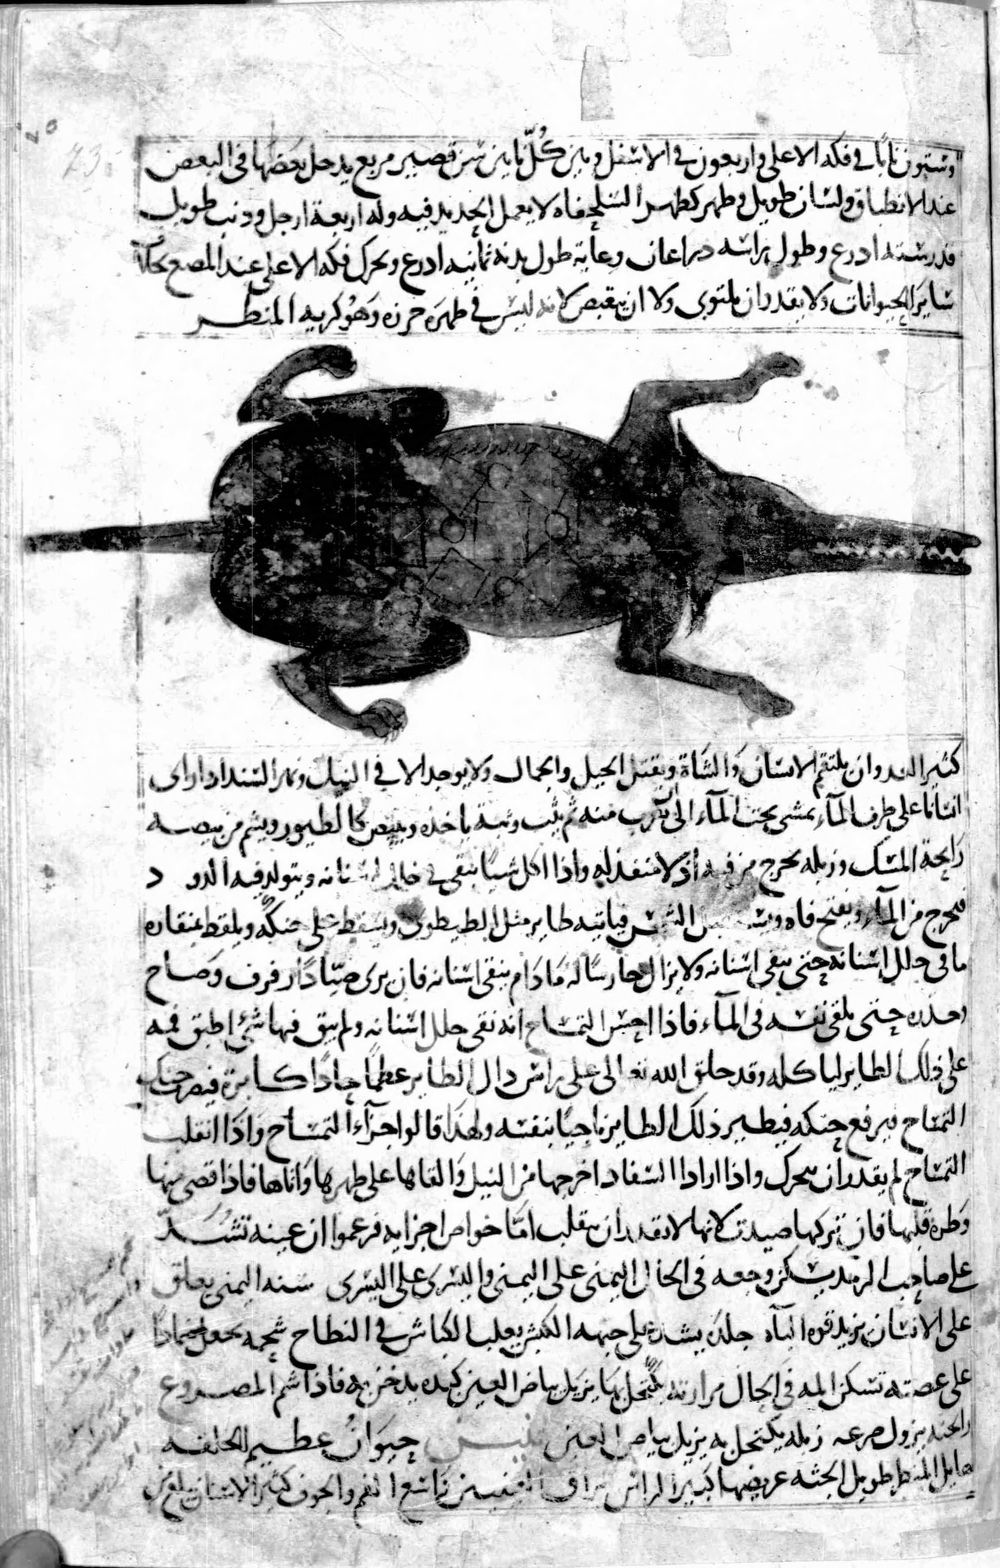 وستون نابا في فكه الاعلى واربعون في الاسفل وبين كل نابين سن قصير مربع يدخل بعضها في البعض
عند الانطباق ولسان طويل وظهر كظهر السلحفاه لا يعمل الحديد فيه وله اربعة ارجل وذنب طويل
قدر ستة اذرع وطول راسه ذراعان وغاية طول بدنه ثمانيه اذرع ويحرك فكه الاعلى عند المضغ بخلاف
سائر الحيوانات ولا يقدر ان يلتوى ولا ان ينقبض لانه ليس في ظهره خرزه وهو كريه المنظر
كثير العدوان يلتقم الانسان والشاة ويقتل الخيل والجمال ولا يوجد الا في النيل ونهر السند اذا راى
انسانا على طرف الماء يمشى تحت الماء الى ان يقرب منه ثم يثب وثبة ياخذه ويبيض كالطيور ويشم من بيضه
رايحة المسك وزبله يخرج من فيه اذ لا منفذ له واذا اكل شيا يبقى في خلال اسنانه ويتولد فيه الدود
فيخرج من الماء ويفتح فاه الشمس فياتيه طاير مثل الطيطوى ويسقط على حنكه ويلقط بمنقاره
ما في خلل اسنانه حتى ينقى اسنانه ولا يزال حارسا له ما دام ينقى اسنانه فان يرى صيادا رفرف وصاح
وحذره حتى يلقى نفسه في الماء فاذا احس التمساح انه نقى خلل اسنانه ولم يبق فيها شئ اطبق فمه
على ذلك الطاير لياكله وقد خلق الله تعالى على راس ذلك الطاير عظما حادا كابرة فيضرب حنك
التمساح فيرفع حنكه فيطير ذلك الطاير ناجيا بنفسه ولهذا قالوا جزآء التمساح واذا انقلب
التمساح لم يقدر ان يتحرك واذا اراد السفاد اخرجها من النيل والقاها على ظهرها واتاها فاذا قضى منها
وطره قلبها فان تركها صيدت لانها لا تقدر ان تنقلب اما خواص اجزايه فزعموا ان عينه تشد
على صاحب الرمد يسكن وجعه في الحال اليمنى على اليمنى واليسرى على اليسرى سنه اليمنى يعلق
على الانسان يزيد قوة الباه جلده يشد على جبهه الكبش يغلب الكباش في النطاح شحمه يجعل ضمادا
على عضته تسكن المه في الحال مرارته يكتحل بها يزيل بياض العين كبده يدخن به فاذا شم المصروع
رايحته يزول صرعه زبله يكتحل به يزيل بياض العين حيوان عظيم الخلقه
هايل المنظر طويل الجثه عريضها كبير الراس براق العينين واسع الفم والجوف كثير الاسنان يبلع من